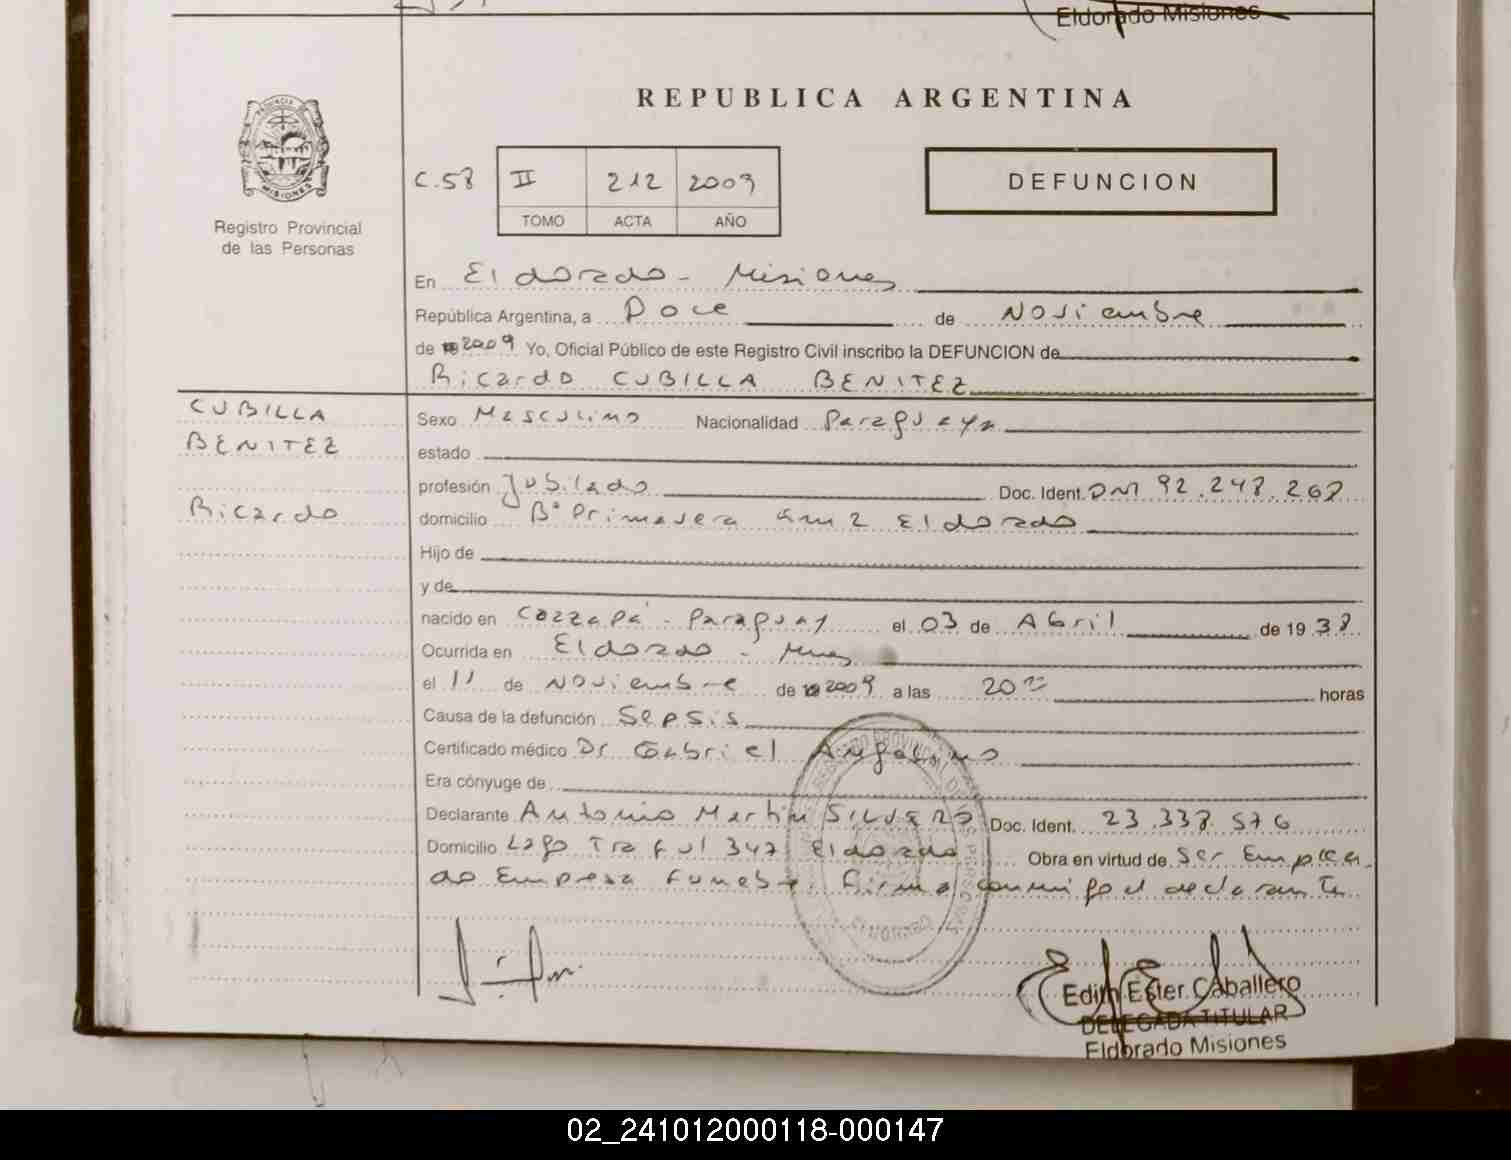 Eldorado Misiones
PROVINCIA DE
MISIONES
Registro Provincial
de las Personas
REPUBLICA ARGENTINA
C.58 II 212 2009
TOMO ACTA AÑO
DEFUNCION
En Eldorado - Misiones
República Argentina, a Doce de Noviembre
de 2009 Yo, Oficial Público de este Registro Civil inscribo la DEFUNCION de
Ricardo CUBILLA BENITEZ
CUBILLA
BENITEZ
Ricardo
Sexo Masculino Nacionalidad Paraguaya
estado
profesión Jubilado Doc. Ident. DNI 92.248.268
domicilio Bº Primavera Km 2 Eldorado
Hijo de
y de
nacido en Cazzapá - Paraguay el 03 de Abril de 19 38
Ocurrida en Eldorado - Mnes
el 11 de Noviembre de 2009 a las 20 horas
Causa de la defunción Sepsis
Certificado médico Dr. Gabriel
Era cónyuge de
Declarante Antonio Martin SILVERO Doc. Ident. 23.338.576
Domicilio Lago Traful 347 Eldorado Obra en virtud de Ser Emplea
do Empresa Funebre. Firma conmigo el declarante
ELDORADO
Edith Ester Caballero
DELEGADA TITULAR
Eldorado Misiones
02_241012000118-000147